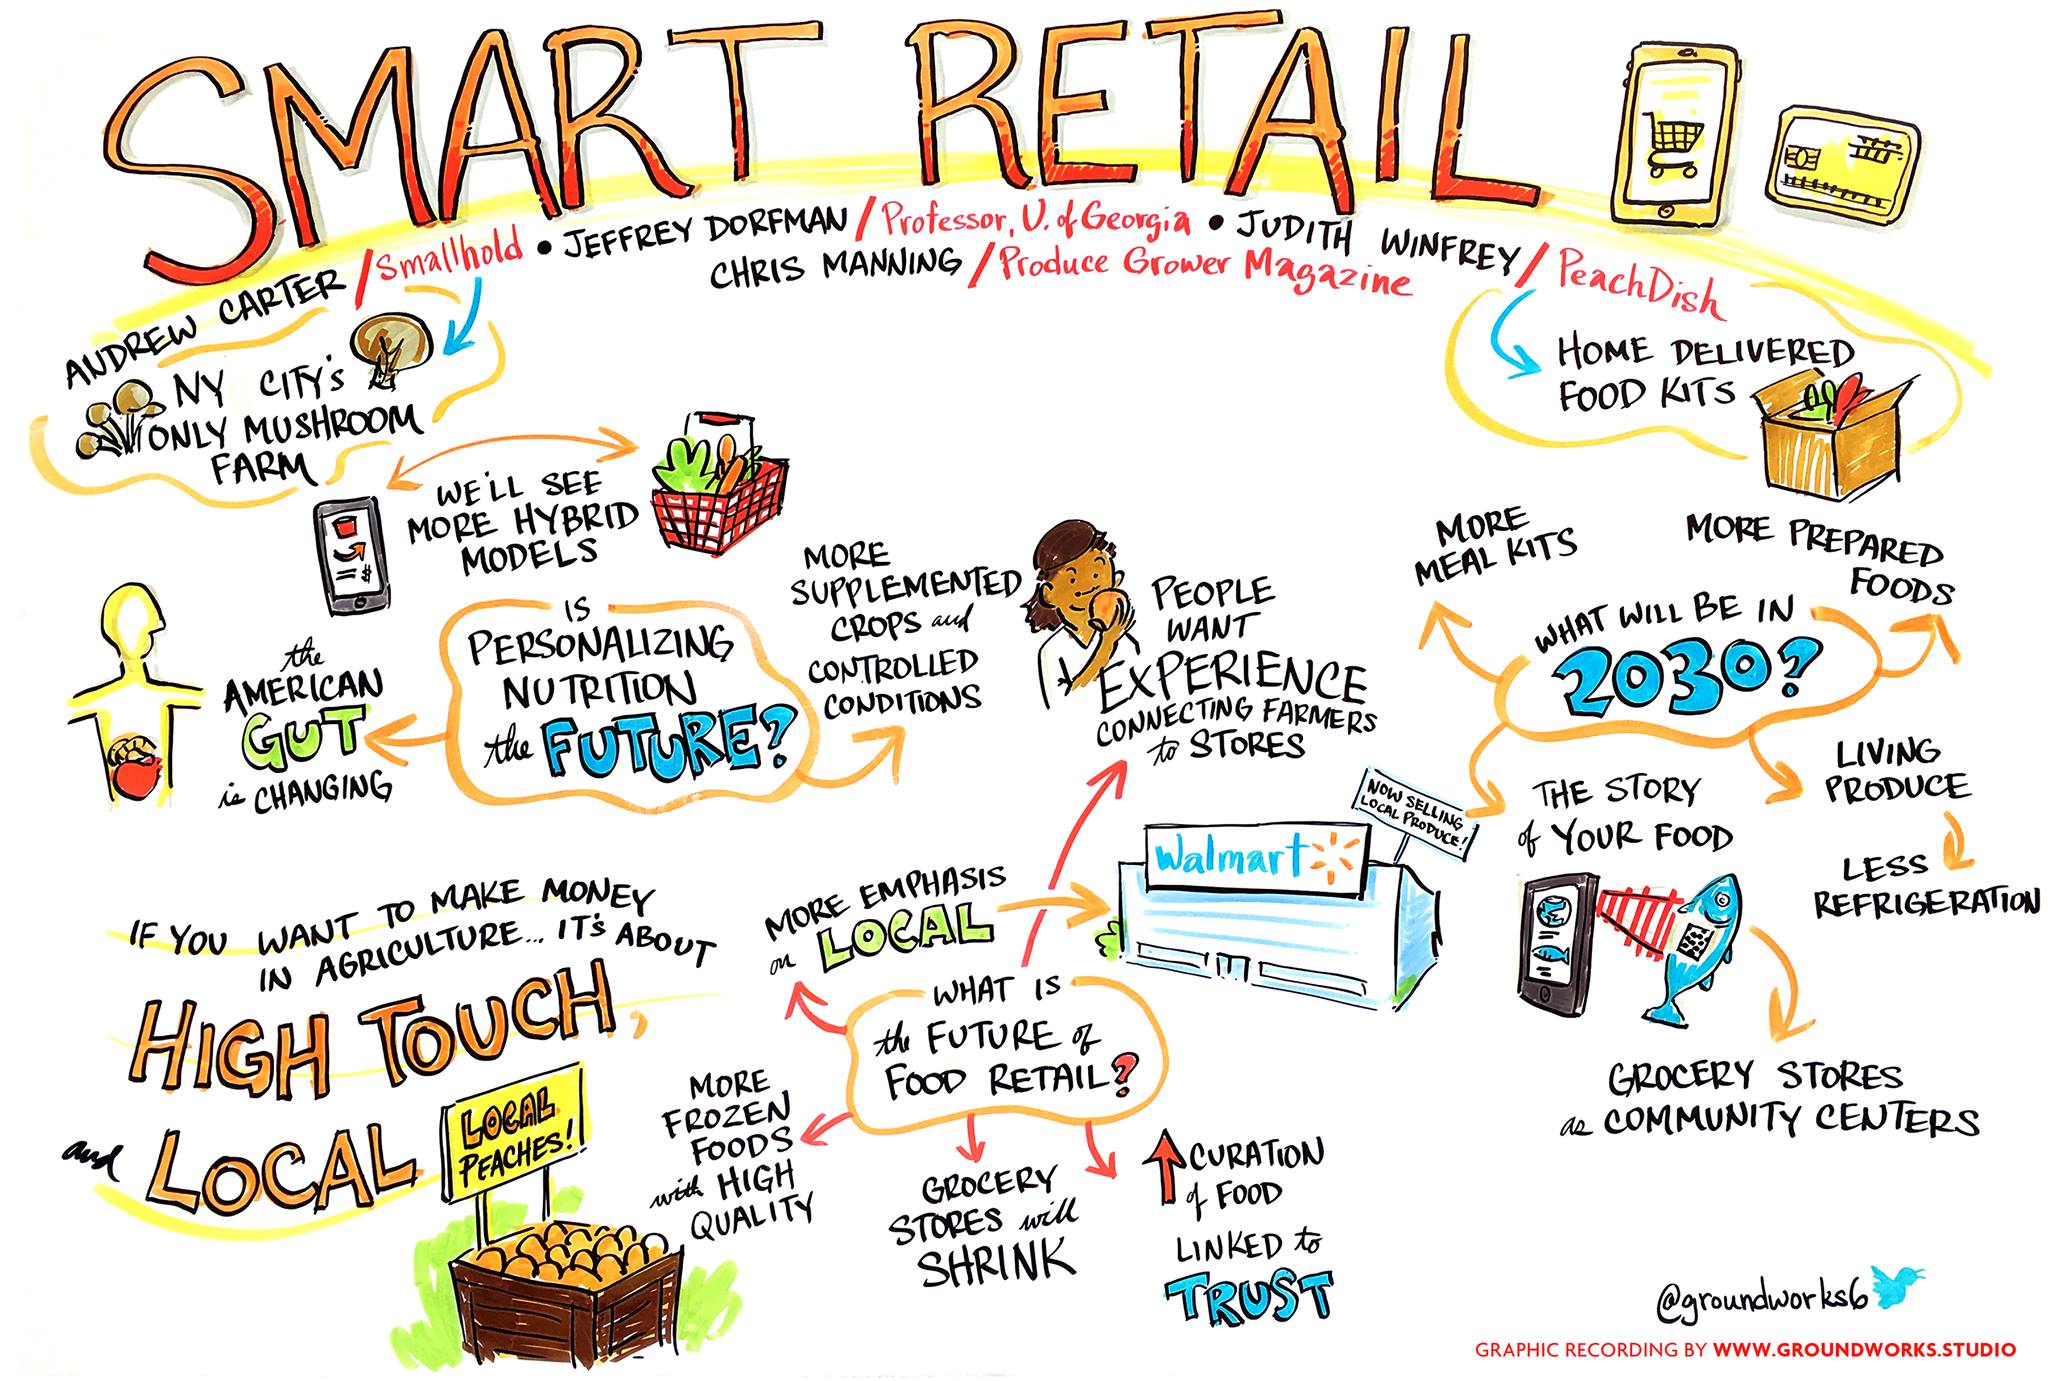 SMART RETAIL
ANDREW CARTER / Smallhold • JEFFREY DORFMAN / Professor, U. of Georgia • JUDITH WINFREY / PeachDish
CHRIS MANNING / Produce Grower Magazine
NY CITY'S
ONLY MUSHROOM
FARM
HOME DELIVERED
FOOD KITS
WE'LL SEE
MORE HYBRID
MODELS
$
IS
PERSONALIZING
NUTRITION
the FUTURE?
the
AMERICAN
GUT
is CHANGING
MORE
SUPPLEMENTED
CROPS and
CONTROLLED
CONDITIONS
PEOPLE
WANT
EXPERIENCE
CONNECTING FARMERS
to STORES
WHAT WILL BE IN
2030?
MORE
MEAL KITS
MORE PREPARED
FOODS
THE STORY
of YOUR FOOD
LIVING
PRODUCE
LESS
REFRIGERATION
GROCERY STORES
as COMMUNITY CENTERS
IF YOU WANT TO MAKE MONEY
IN AGRICULTURE... IT'S ABOUT
HIGH TOUCH,
and LOCAL
LOCAL
PEACHES!
WHAT IS
the FUTURE of
FOOD RETAIL?
MORE EMPHASIS
on LOCAL
Walmart
NOW SELLING
LOCAL PRODUCE!
MORE
FROZEN
FOODS
with HIGH
QUALITY
GROCERY
STORES will
SHRINK
CURATION
of FOOD
LINKED to
TRUST
@groundworks6
GRAPHIC RECORDING BY WWW.GROUNDWORKS.STUDIO